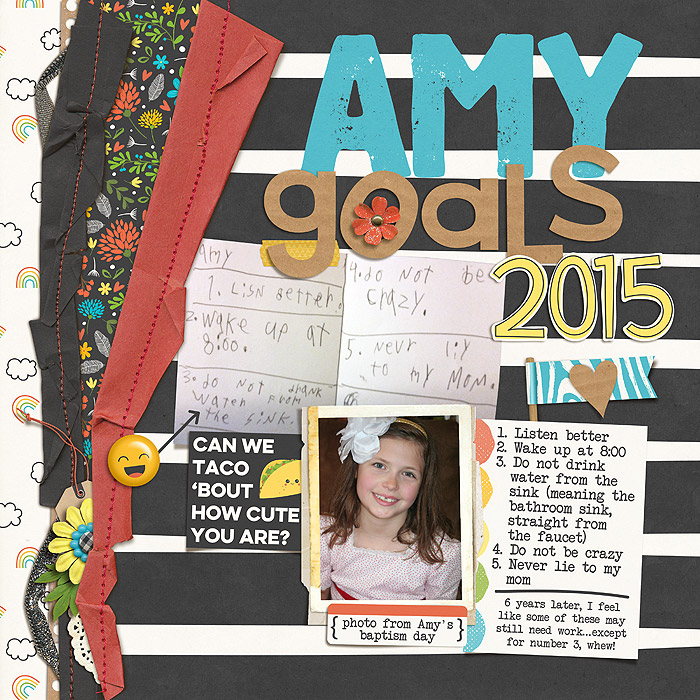 AMY
goals
2015
Amy
1. Lisn better.
2. Wake up at
8:00.
3. do not drank
water from
the sink.
4. do not be
crazy.
5. nevr liy
to my mom.
CAN WE
TACO
‘BOUT
HOW CUTE
YOU ARE?
{ photo from Amy's
baptism day }
1. Listen better
2. Wake up at 8:00
3. Do not drink
water from the
sink (meaning the
bathroom sink,
straight from
the faucet)
4. Do not be crazy
5. Never lie to my
mom
6 years later, I feel
like some of these may
still need work...except
for number 3, whew!